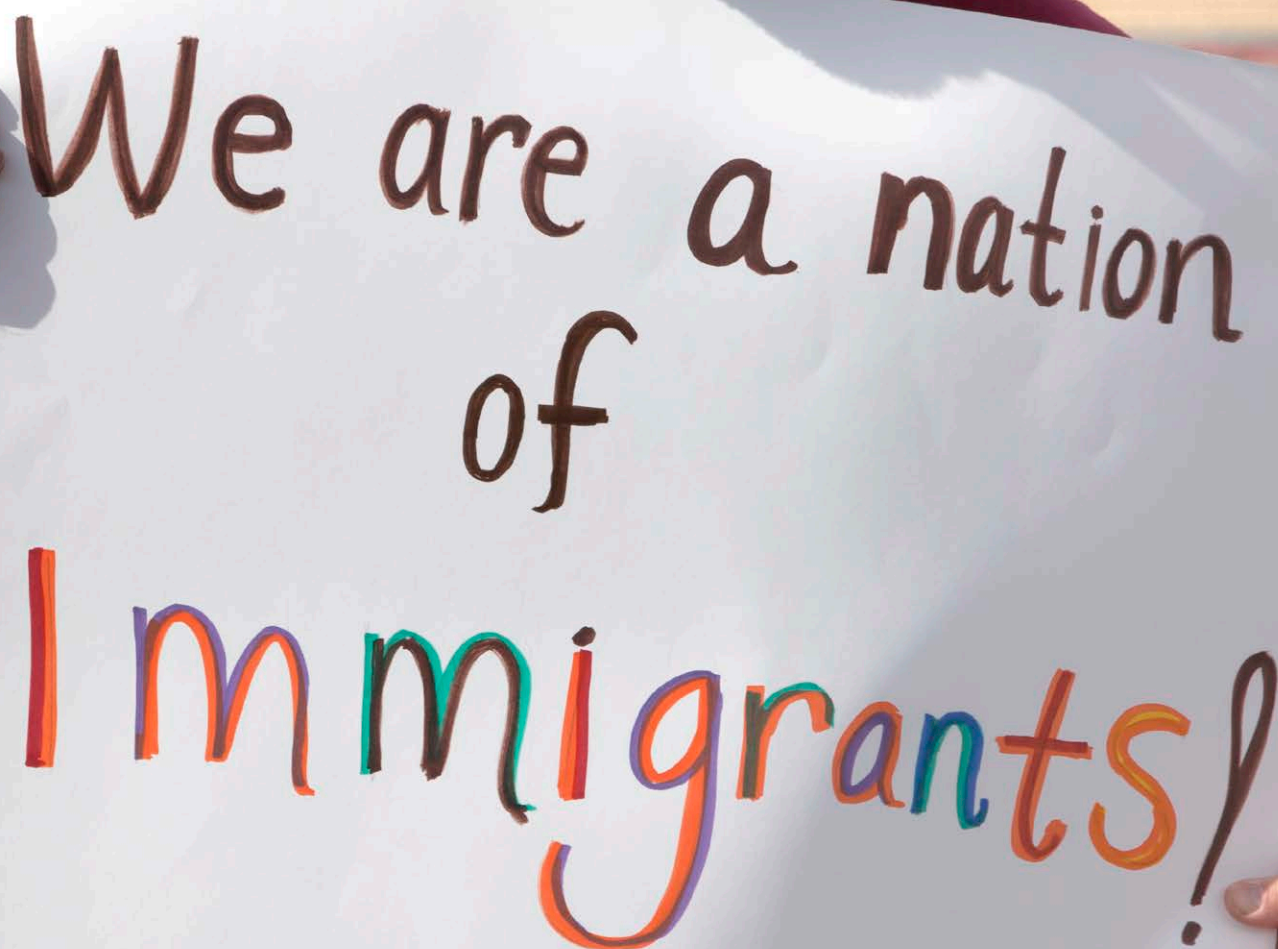 We are a nation
of
Immigrants!